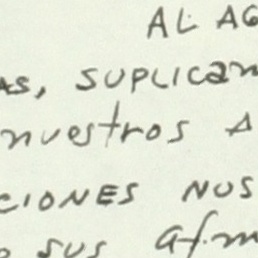 AL AG
AS, SUPLICAN
nuestros A
CIONES NOS
SUS afm